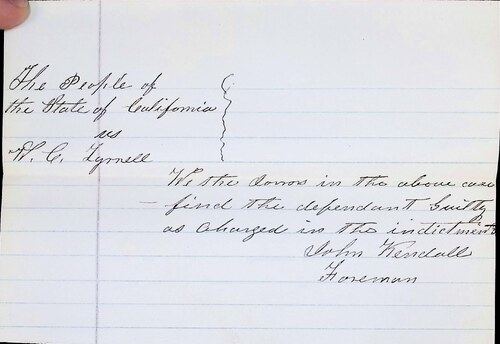 The People of
the State of California
vs
W. C. Tyrnell
We the Jorors in the above case
find the dependant Guilty
as Charged in the indictment
John Kendall
Foreman